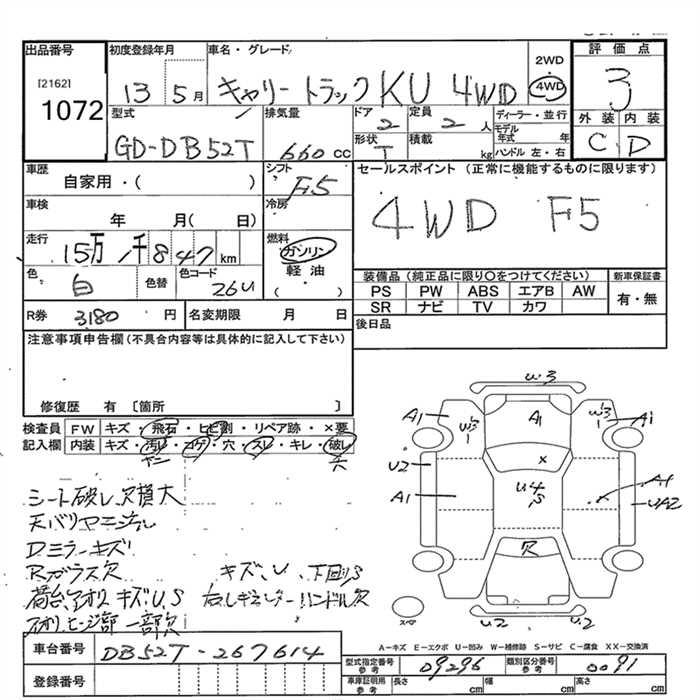 出品番号 初度登録年月 車名・グレード 2WD 評価点
[2162] 13 5月 キャリートラック KU 4WD 4WD 3
1072
型式 排気量 ドア 2 定員 2 人 ディーラー・並行 外装 内装
GD-DB52T 660 cc 形状 T 積載 kg モデル年式 年 C D
ハンドル 左・右
車歴 シフト セールスポイント (正常に機能するものに限ります)
自家用・( ) F5 4WD F5
車検 冷房
年 月( 日)
走行 燃料
15万 1千 8 4 7 km ガソリン
色 白 色替 色コード 26U 軽油・( ) 装備品 (純正品に限り○をつけてください) 新車保証書
PS PW ABS エアB AW 有・無
SR ナビ TV カワ
R券 3180 円 名変期限 月 日 後日品
注意事項申告欄 (不具合内容等は具体的に記入して下さい)
修復歴 有 〔箇所 〕
検査員 FW キズ・飛石・ヒビ割・リペア跡・×要
記入欄 内装 キズ・汚れ・コゲ・穴・スレ・キレ・破レ
ヤニ 大
シート破レ欠損大
天バリヤニ汚レ
Dミラーキズ
Rガラス欠 キズ、U、下回りS
荷台アオリキズ、U、S
アオリヒンジ部一部欠
U.3
A1 A1 A1
U2 A1 U4 S × A1 UA2
欠
スペア U.2 U.2
A-キズ E-エクボ U-凹み W-補修跡 S-サビ C-腐食 XX-交換済
車台番号 DB52T-267614 型式指定番号 参考 09296 類別区分番号 参考 0091
登録番号 車庫証明用 参考 長さ cm 幅 cm 高さ cm